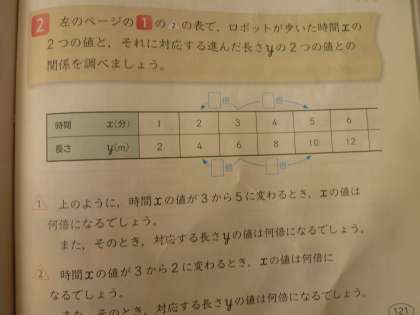 2 左のページの 1 の 2 の表で、ロボットが歩いた時間xの
2つの値と、それに対応する進んだ長さyの2つの値との
関係を調べましょう。
□倍 □倍
時間 x(分) 1 2 3 4 5 6
長さ y(m) 2 4 6 8 10 12
□倍 □倍
1 上のように、時間xの値が3から5に変わるとき、xの値は
何倍になるでしょう。
また、そのとき、対応する長さyの値は何倍になるでしょう。
2 時間xの値が3から2に変わるとき、xの値は何倍に
なるでしょう。
また、そのとき、対応する長さyの値は何倍になるでしょう。
121